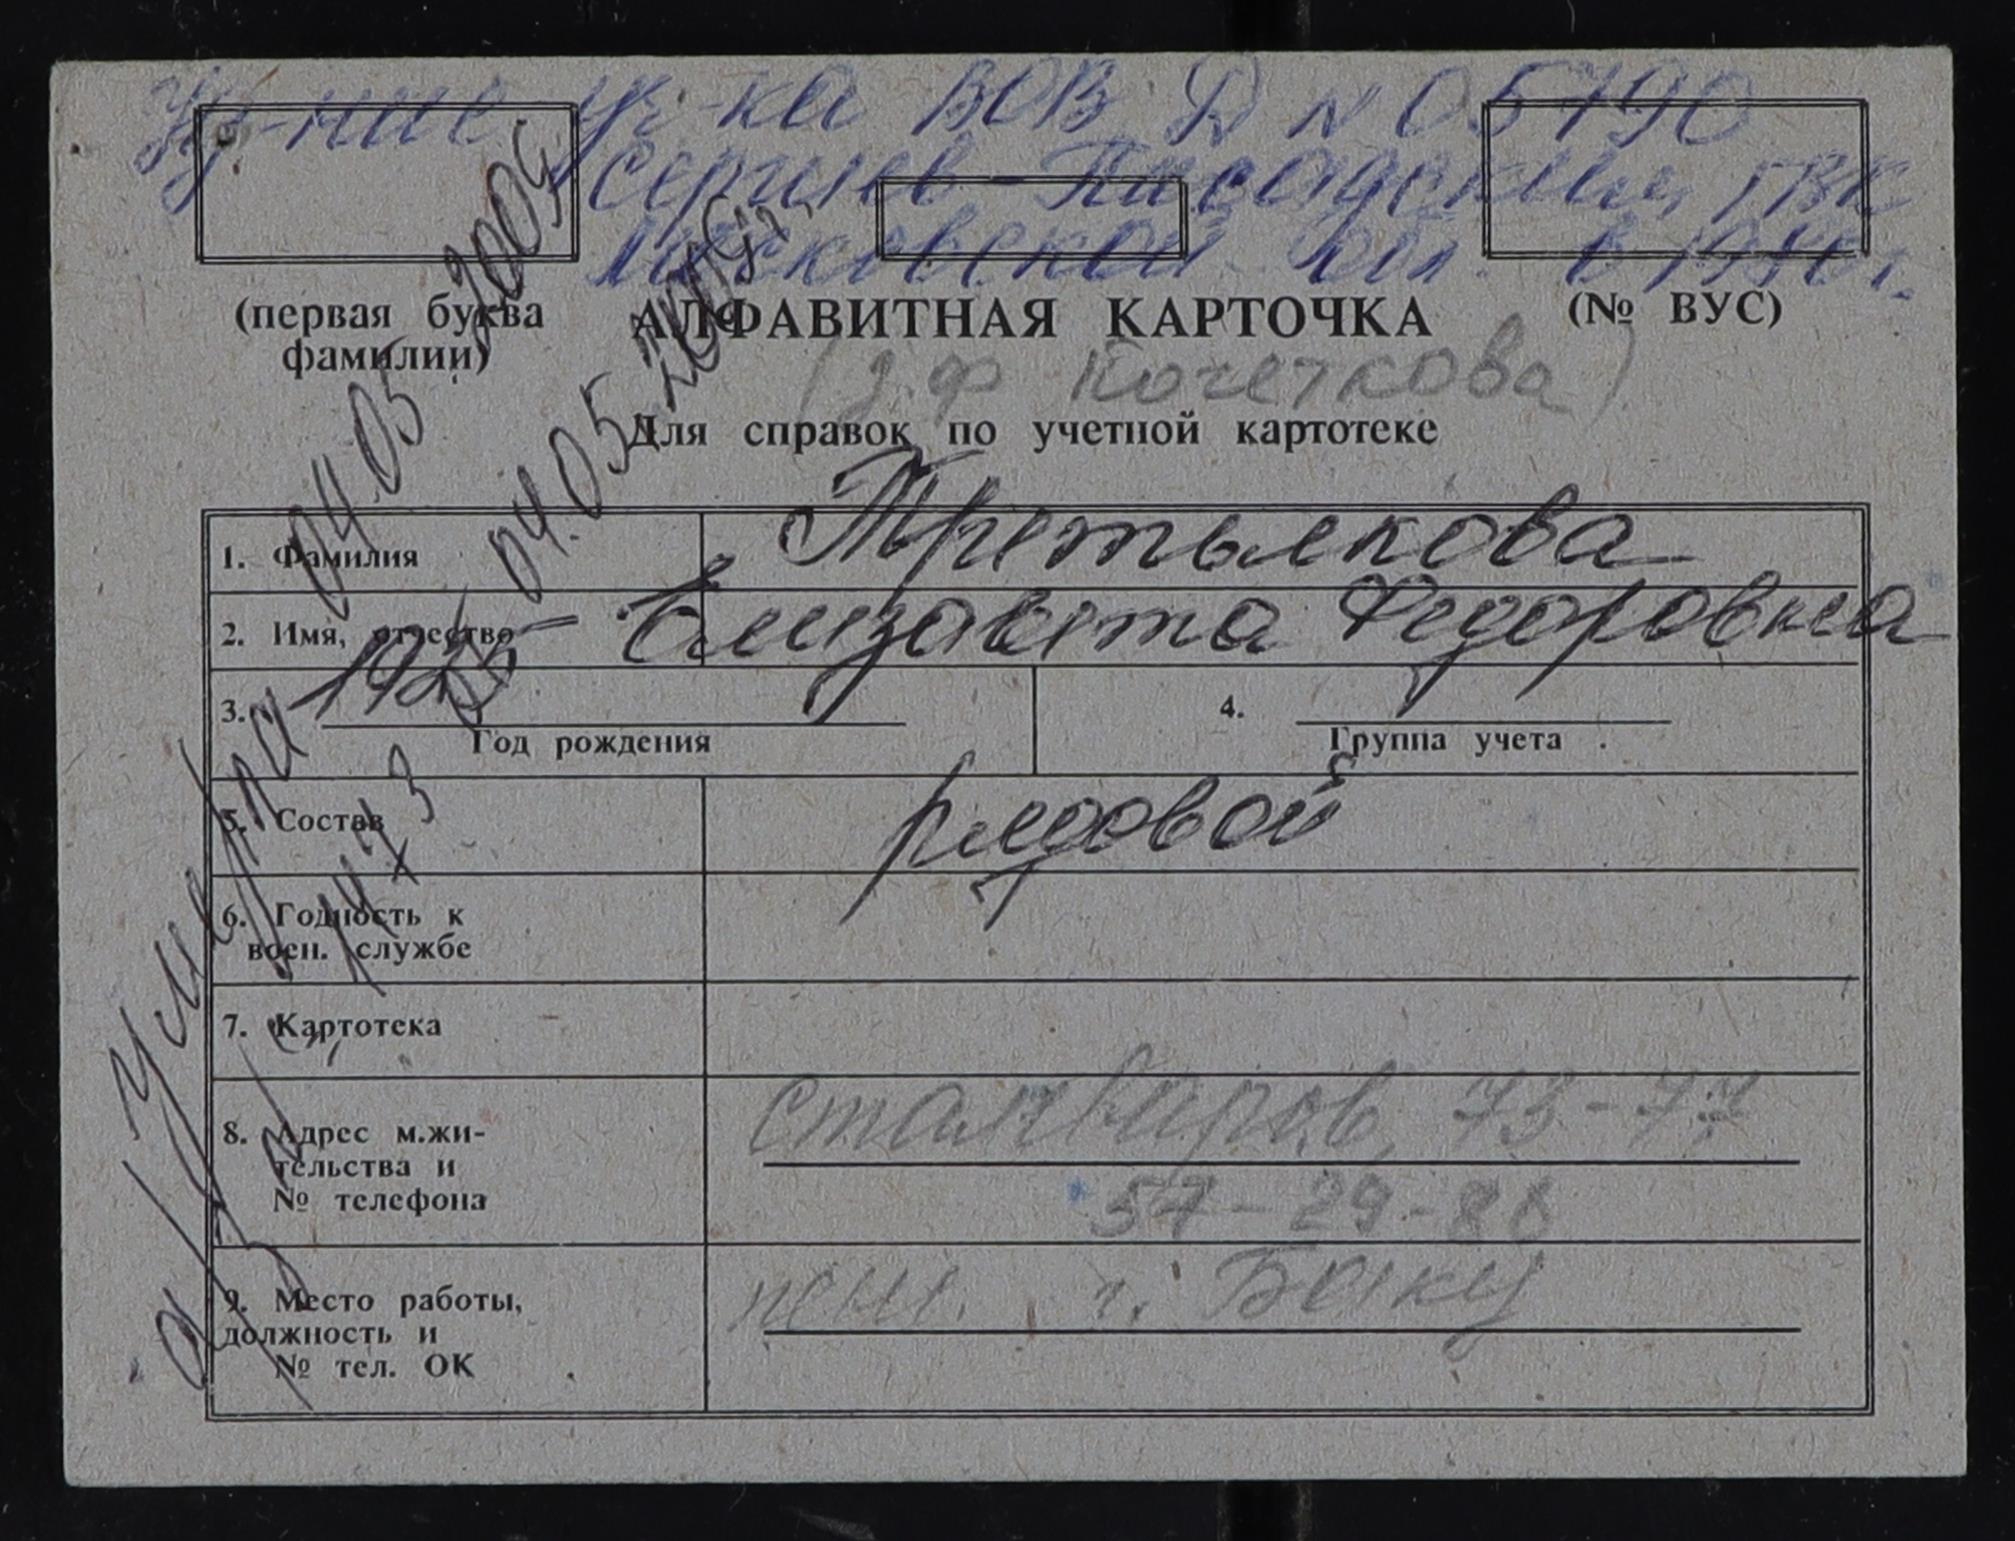 Уд-ние Уч-ка ВОВ Д № 05790
Сергиев-Посадским ГВК
Московской обл. в 1980 г.
(первая буква
фамилии)
АЛФАВИТНАЯ КАРТОЧКА
(№ ВУС)
(д.ф Кочеткова)
Для справок по учетной картотеке
1. Фамилия Третьякова
2. Имя, отчество Елизавета Федоровна
3. 1925
Год рождения
4.
Группа учета
5. Состав рядовой
6. Годность к
воен. службе
7. Картотека
8. Адрес м.жи-
тельства и
№ телефона
73-77
57-29-86
9. Место работы,
должность и
№ тел. ОК
пенс. г. Баку
Умерла 04.05.2005
04.05.2005г.